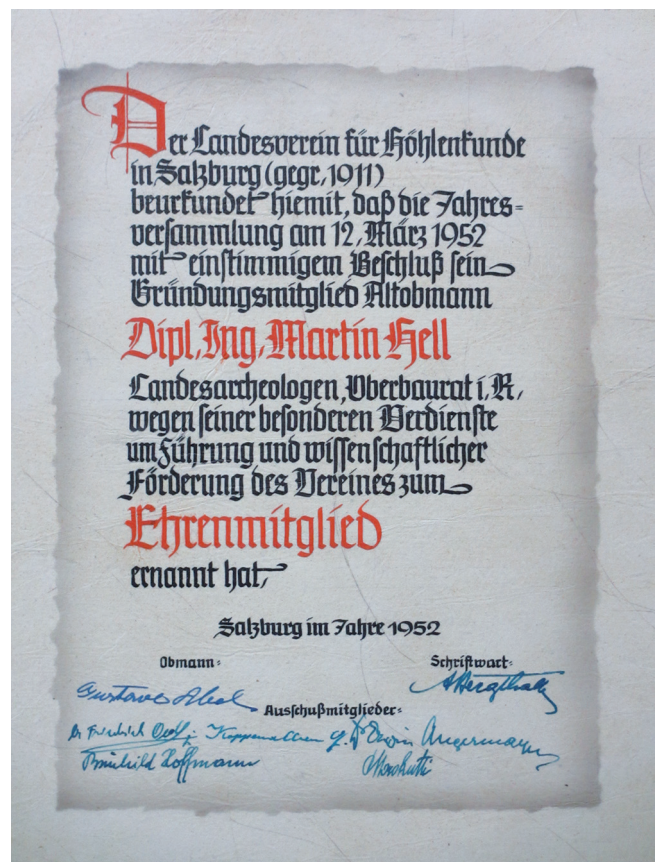 Der Landesverein für Höhlenkunde
in Salzburg (gegr. 1911)
beurkundet hiemit, daß die Jahres=
versammlung am 12. März 1952
mit einstimmigem Beschluß sein
Gründungsmitglied Altobmann
Dipl. Ing. Martin Hell
Landesarcheologen, Oberbaurat i. R.,
wegen seiner besonderen Verdienste
um Führung und wissenschaftlicher
Förderung des Vereines zum
Ehrenmitglied
ernannt hat.
Salzburg im Jahre 1952
Obmann: Schriftwart:
Gustave Abel
Ausschußmitglieder:
Dr Friedrich Oedl Dr Erwin Angermayer
Brunhild Hoffmann